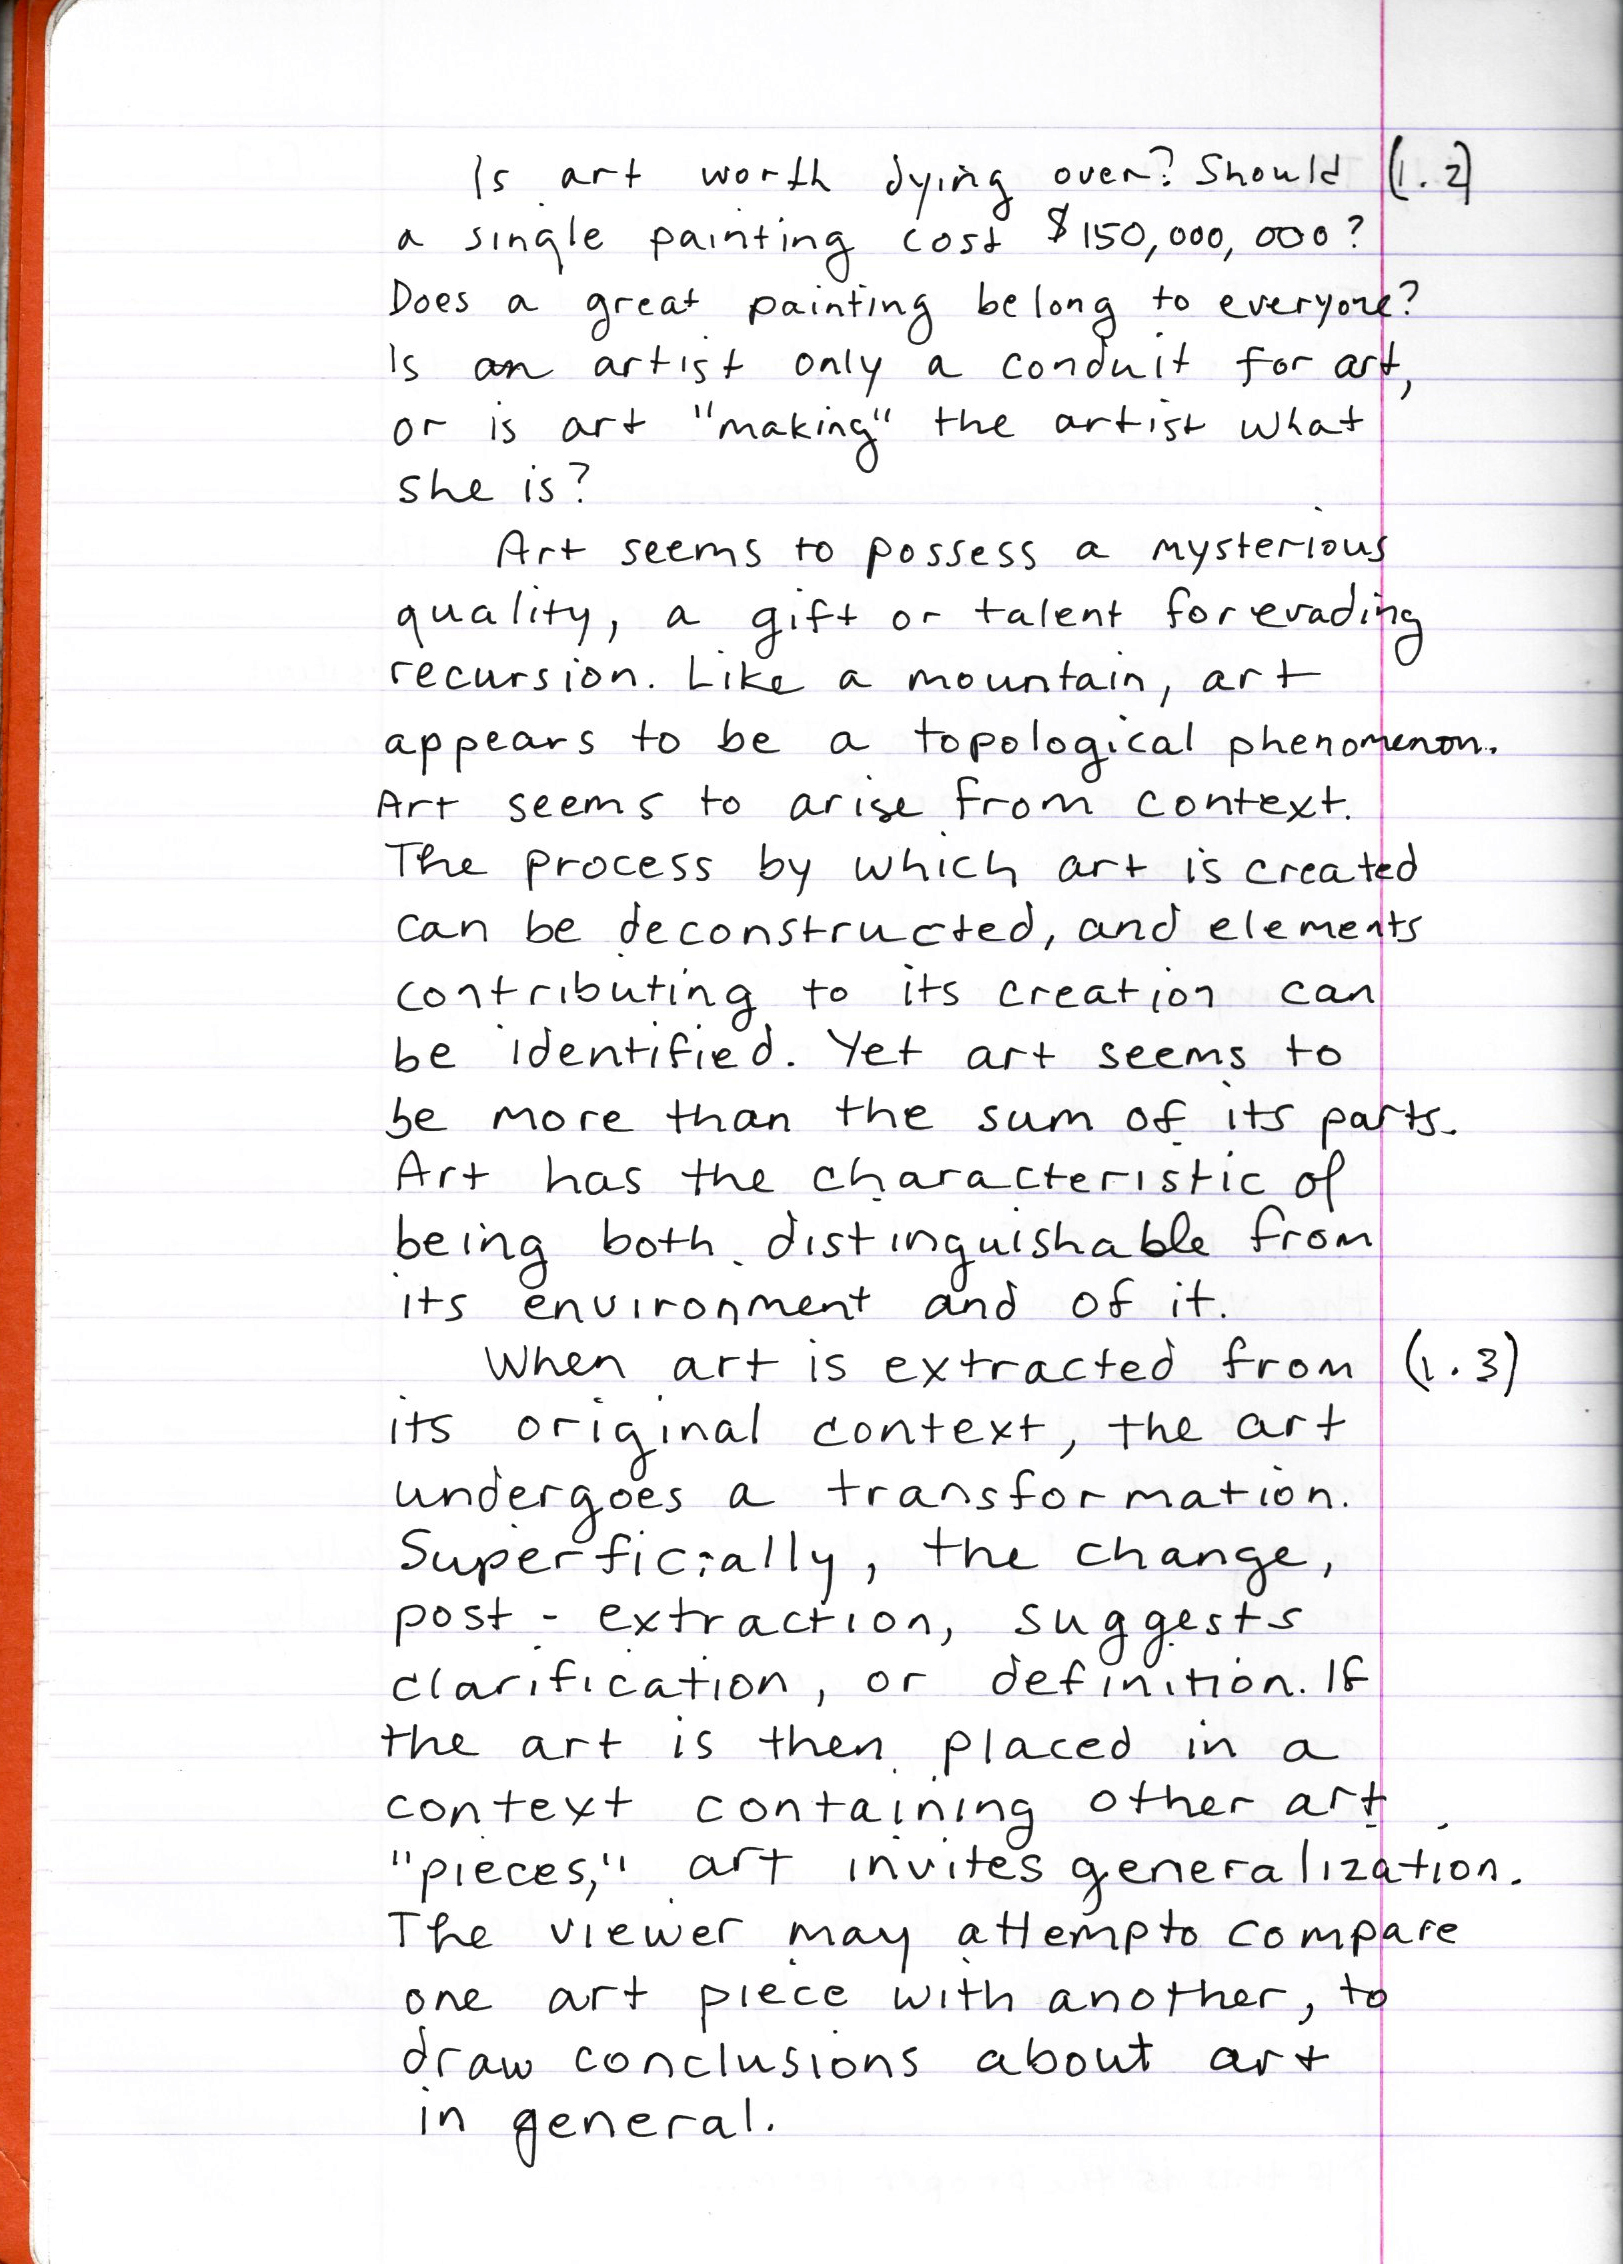 Is art worth dying over? Should (1.2)
a single painting cost $150,000,000?
Does a great painting belong to everyone?
Is an artist only a conduit for art,
or is art "making" the artist what
she is?
Art seems to possess a mysterious
quality, a gift or talent for evading
recursion. Like a mountain, art
appears to be a topological phenomenon.
Art seems to arise from context.
The process by which art is created
can be deconstructed, and elements
contributing to its creation can
be identified. Yet art seems to
be more than the sum of its parts.
Art has the characteristic of
being both distinguishable from
its environment and of it.
When art is extracted from (1.3)
its original context, the art
undergoes a transformation.
Superficially, the change,
post-extraction, suggests
clarification, or definition. If
the art is then placed in a
context containing other art
"pieces," art invites generalization.
The viewer may attempto compare
one art piece with another, to
draw conclusions about art
in general.